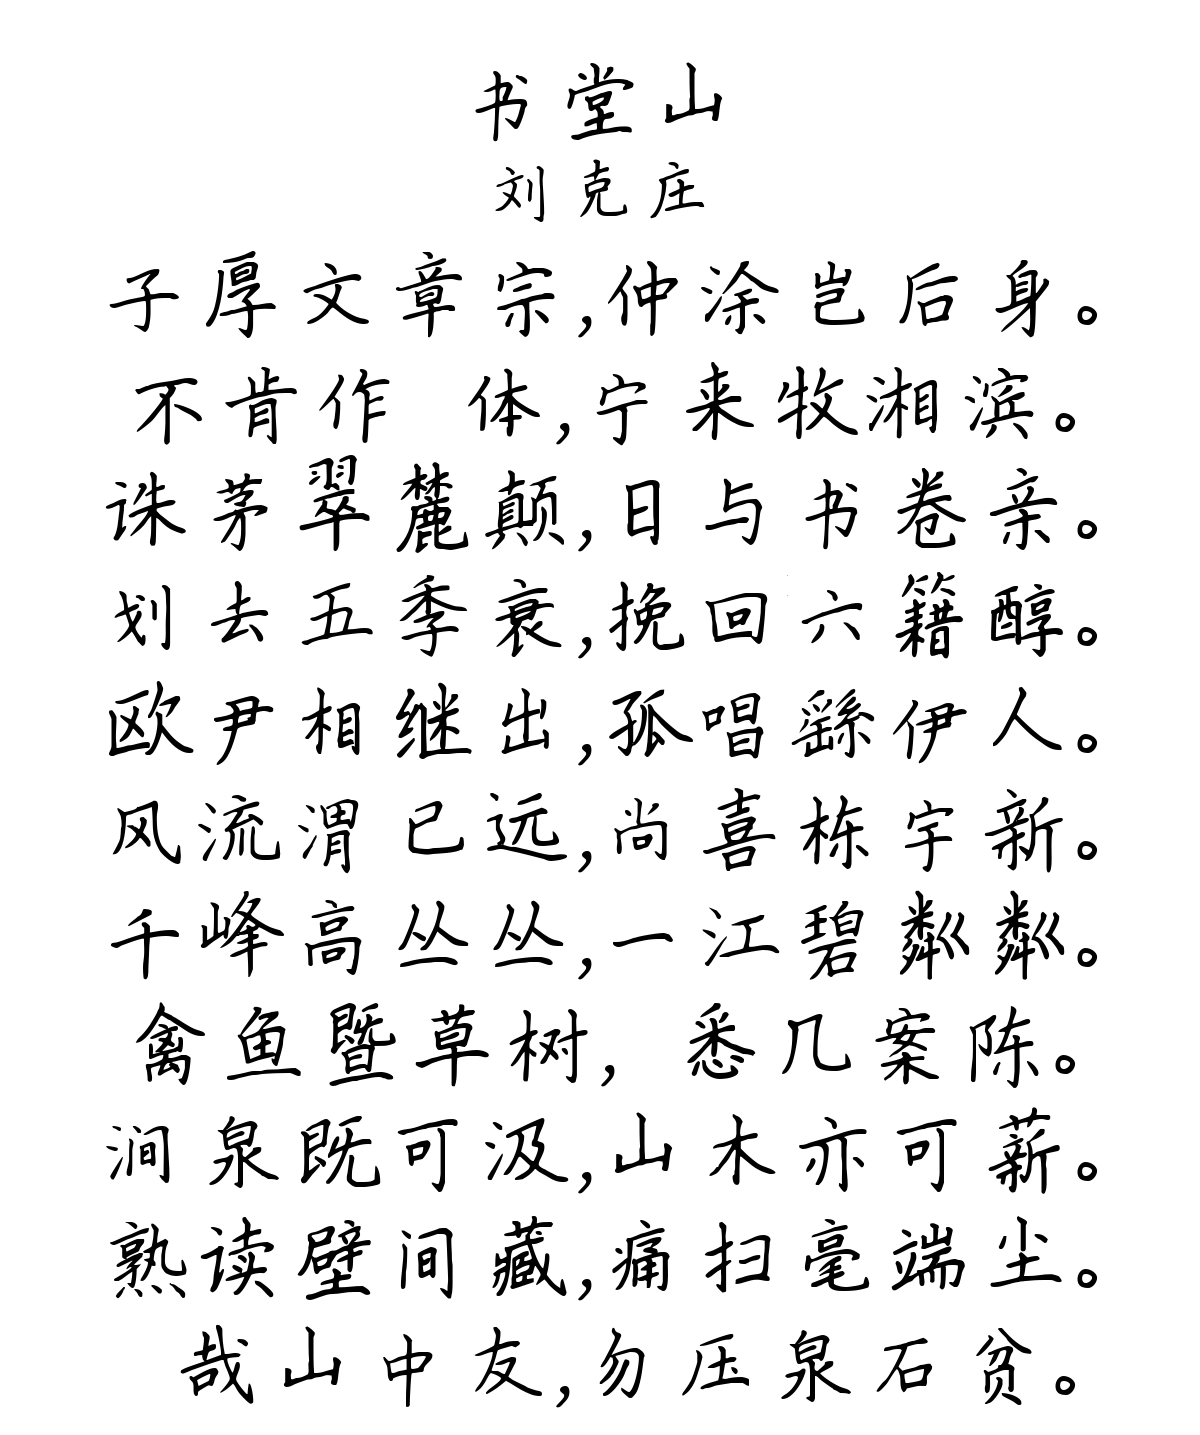 书堂山
刘克庄
子厚文章宗,仲涂岂后身。
不肯作 体,宁来牧湘滨。
诛茅翠麓颠,日与书卷亲。
划去五季衰,挽回六籍醇。
欧尹相继出,孤唱繇伊人。
风流渭已远,尚喜栋宇新。
千峰高丛丛,一江碧粼粼。
禽鱼暨草树, 悉几案陈。
涧泉既可汲,山木亦可薪。
熟读壁间藏,痛扫毫端尘。
哉山中友,勿压泉石贫。